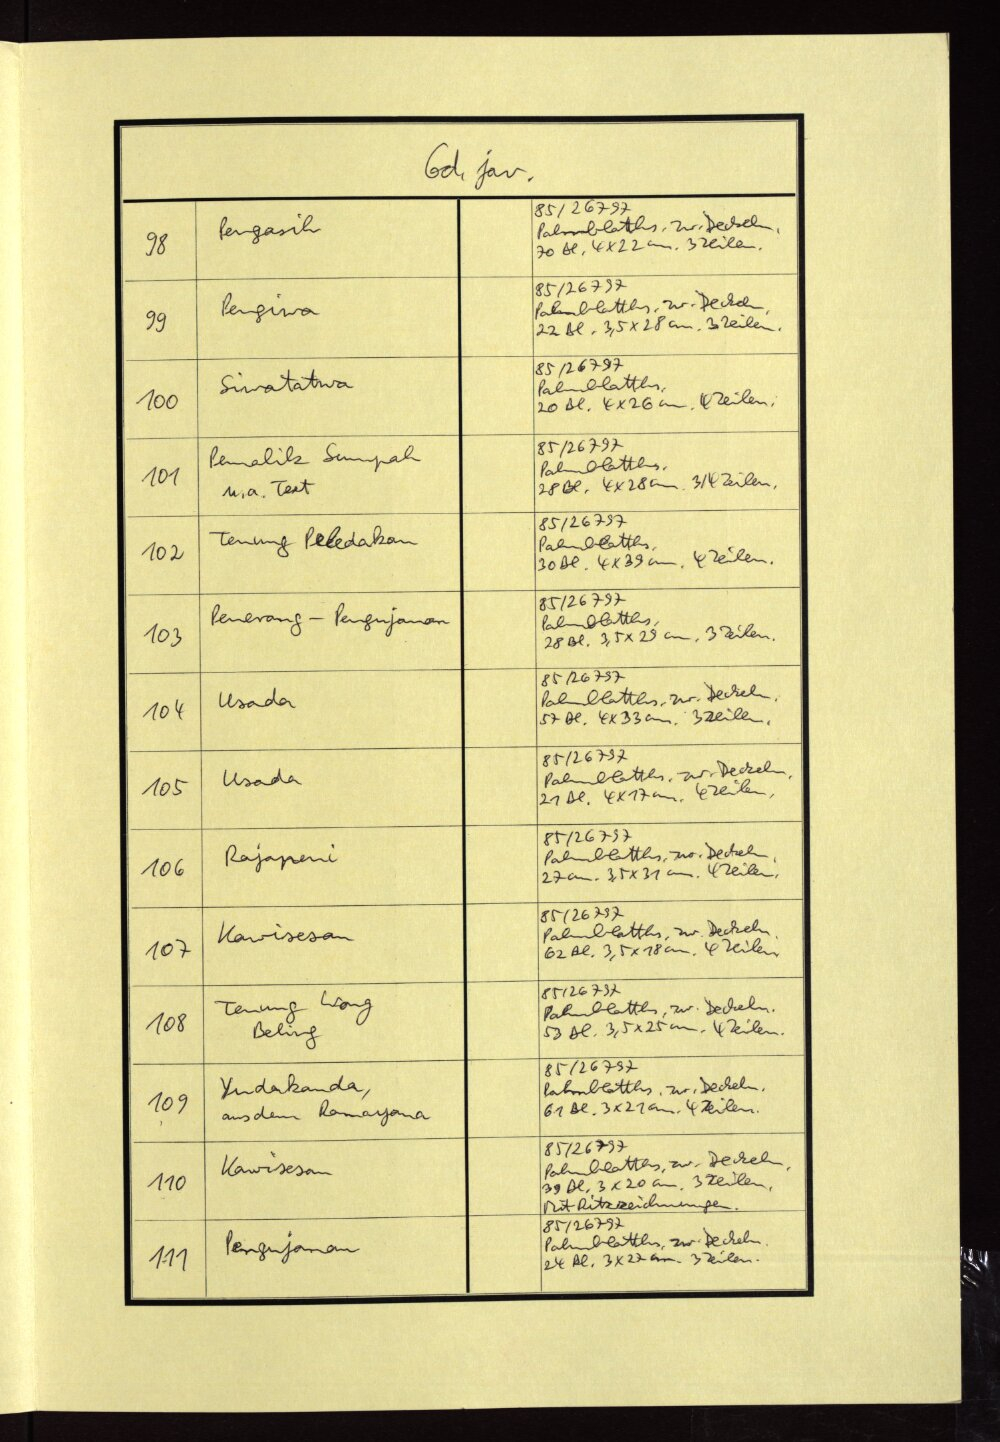 Cod. jav.
98
Pengasih
85/26797
Palmblatths. zw. Deckeln.
70 Bl. 4x22 cm. 3 Zeilen.
99
Pengiwa
85/26797
Palmblatths, zw. Deckeln,
22 Bl. 3,5x28 cm. 3 Zeilen.
100
Siwatatwa
85/26797
Palmblatths.
20 Bl. 4x26 cm. 4 Zeilen.
101
Pemalik Sumpah
u.a. Text
85/26797
Palmblatths.
28 Bl. 4x28 cm. 3/4 Zeilen.
102
Tenung Peledakan
85/26797
Palmblatths.
30 Bl. 4x39 cm. 4 Zeilen.
103
Penerang - Pengujanan
85/26797
Palmblatths.
28 Bl. 3,5x29 cm. 3 Zeilen.
104
Usada
85/26797
Palmblatths. zw. Deckeln.
57 Bl. 4x33 cm. 3 Zeilen.
105
Usada
85/26797
Palmblatths. zw. Deckeln.
21 Bl. 4x17 cm. 4 Zeilen.
106
Rajapeni
85/26797
Palmblatths, zw. Deckeln.
27 cm. 3,5x31 cm. 4 Zeilen.
107
Kawisesan
85/26797
Palmblatths, zw. Deckeln.
62 Bl. 3,5x18 cm. 4 Zeilen
108
Tenung Wong
Beling
85/26797
Palmblatths, zw. Deckeln.
53 Bl. 3,5x25 cm. 4 Zeilen.
109
Yudakanda,
aus dem Ramayana
85/26797
Palmblatths, zw. Deckeln.
61 Bl. 3x21 cm. 4 Zeilen.
110
Kawisesan
85/26797
Palmblatths, zw. Deckeln,
39 Bl. 3x20 cm. 3 Zeilen,
Mit Ritzzeichnungen.
111
Pengujanan
85/26797
Palmblatths, zw. Deckeln.
24 Bl. 3x27 cm. 3 Zeilen.